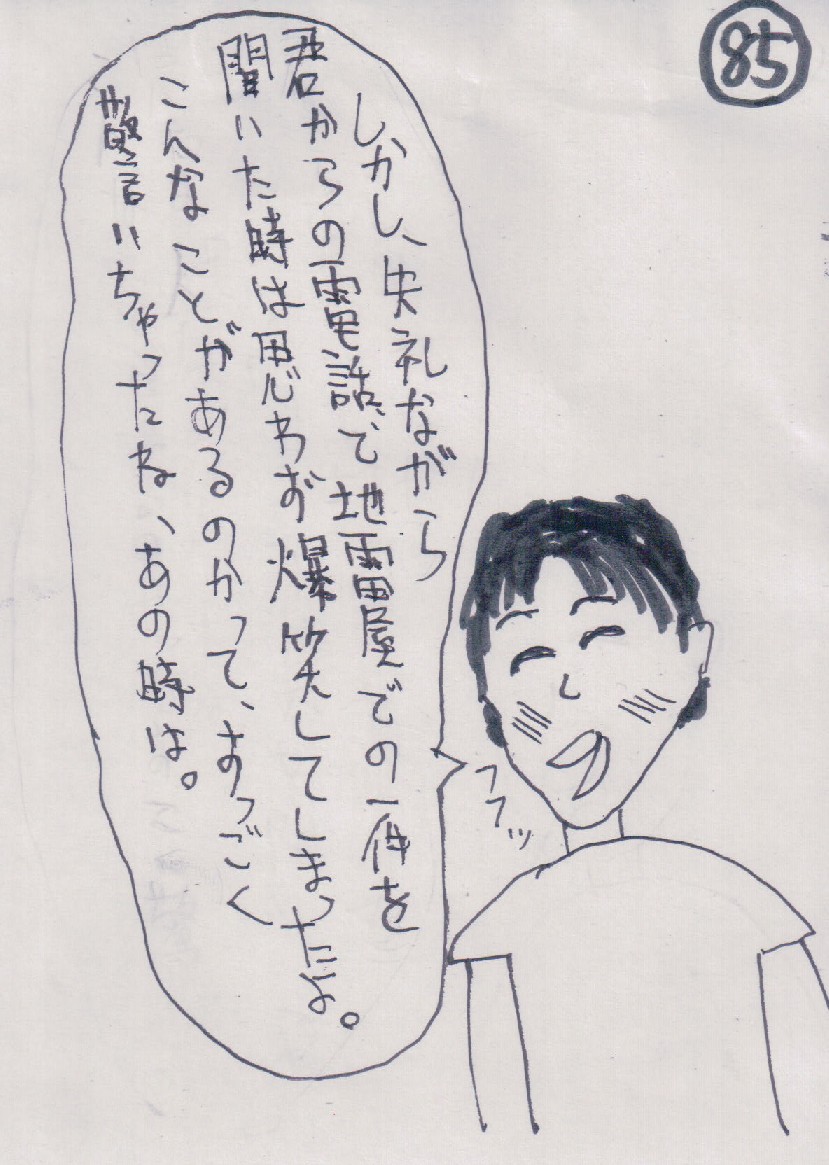 85
しかし、失礼ながら
君からの電話で地雷屋での一件を
聞いた時は思わず爆笑してしまったよ。
こんなことがあるのかって、すっごく
驚いちゃったね、あの時は。
フフッ